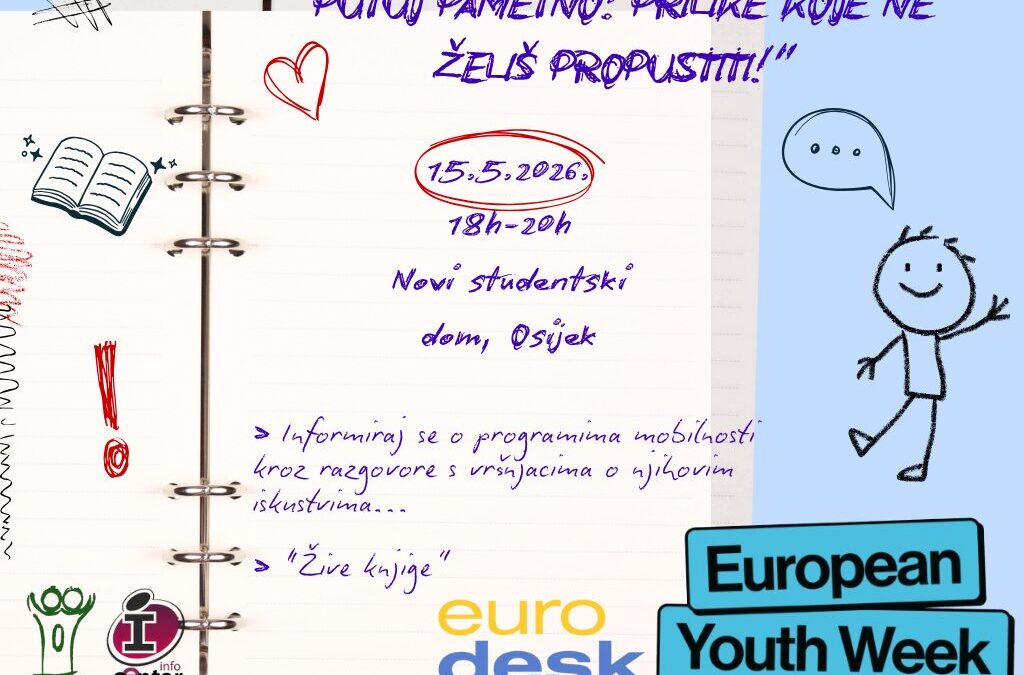 PUTUJ PAMETNO: PRILIKE KOJE NE
ŽELIŠ PROPUSTITI!"
15.5.2026.
18h-20h
Novi studentski
dom, Osijek
> Informiraj se o programima mobilnosti
kroz razgovore s vršnjacima o njihovim
iskustvima...
> "Žive knjige"
i
info
centar
euro
desk
European
Youth Week